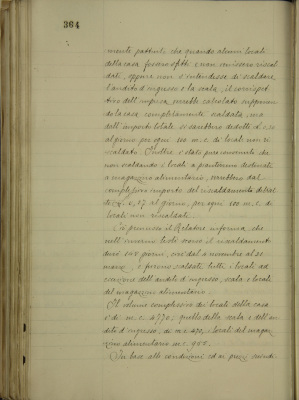 364
mente pattuiti, che quando alcuni locali
della casa fossero sfitti e non venissero riscal
dati, oppure non s'intendesse di scaldare
l'andito d'ingresso e la scala, il corrispet
tivo dell'impresa verrebbe calcolato supponen
do la casa completamente scaldata, ma
dall'importo totale si sarebbero dedotte
al giorno per ogni 100 m.c. di locali non ri
scaldati. Inoltre è stato pure convenuto che
non scaldando i locali a pianterreno destinati
a magazzino alimentario, sarebbero dal
complessivo importo del riscaldamento dedot
te al giorno, per ogni 100 m.c. di
locali non riscaldati.
Ciò premesso il Relatore informa che
nell'inverno testè corso il riscaldamento
durò giorni, cioè dal 4 novembre al 31
marzo e furono scaldati tutti i locali ad
eccezione dell'andito d'ingresso, scala e locali
del magazzino alimentario.
Il volume complessivo dei locali della casa
è di m.c. 4770; quello della scala e dell'an
dito d'ingresso, di m.c. 470, locali del magaz
zino alimentario m.c. 955.
In base alle condizioni ed ai prezzi